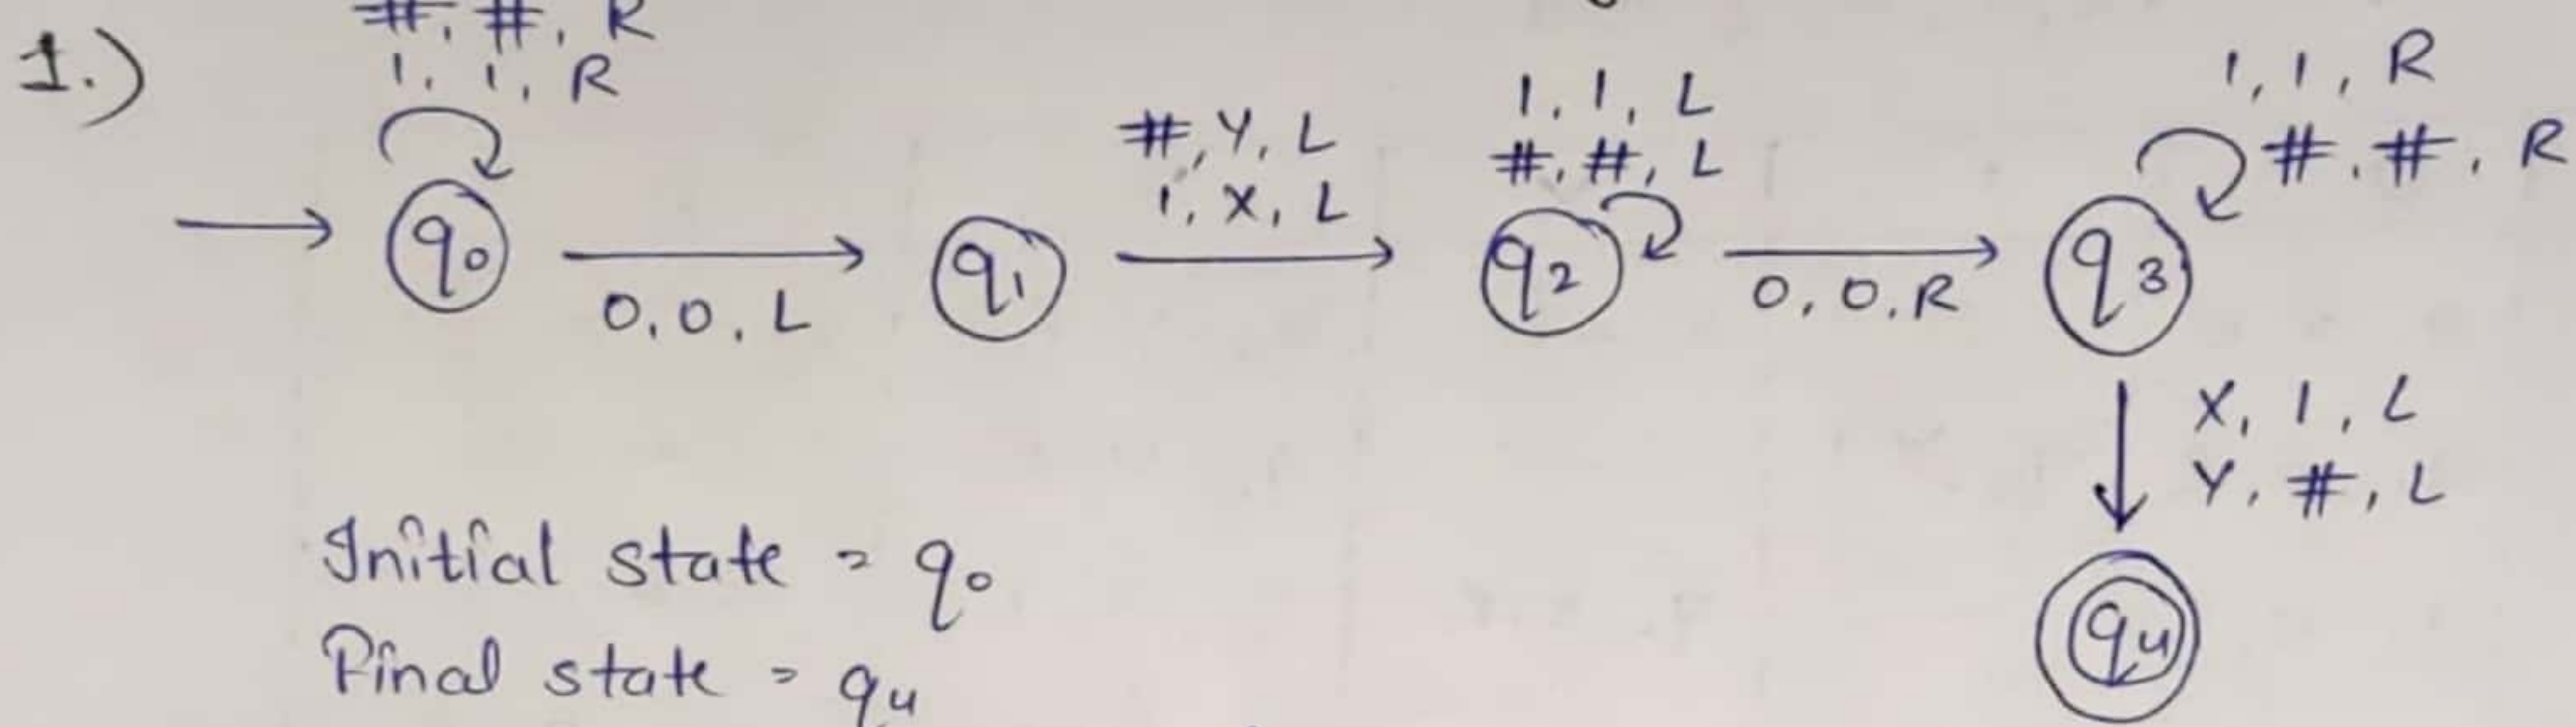 1.)
#, #, R
1, 1, R
q0
0, 0, L
q1
#, Y, L
1, X, L
1, 1, L
#, #, L
q2
0, 0, R
1, 1, R
#, #, R
q3
X, 1, L
Y, #, L
q4
Initial state = q0
Final state = q4